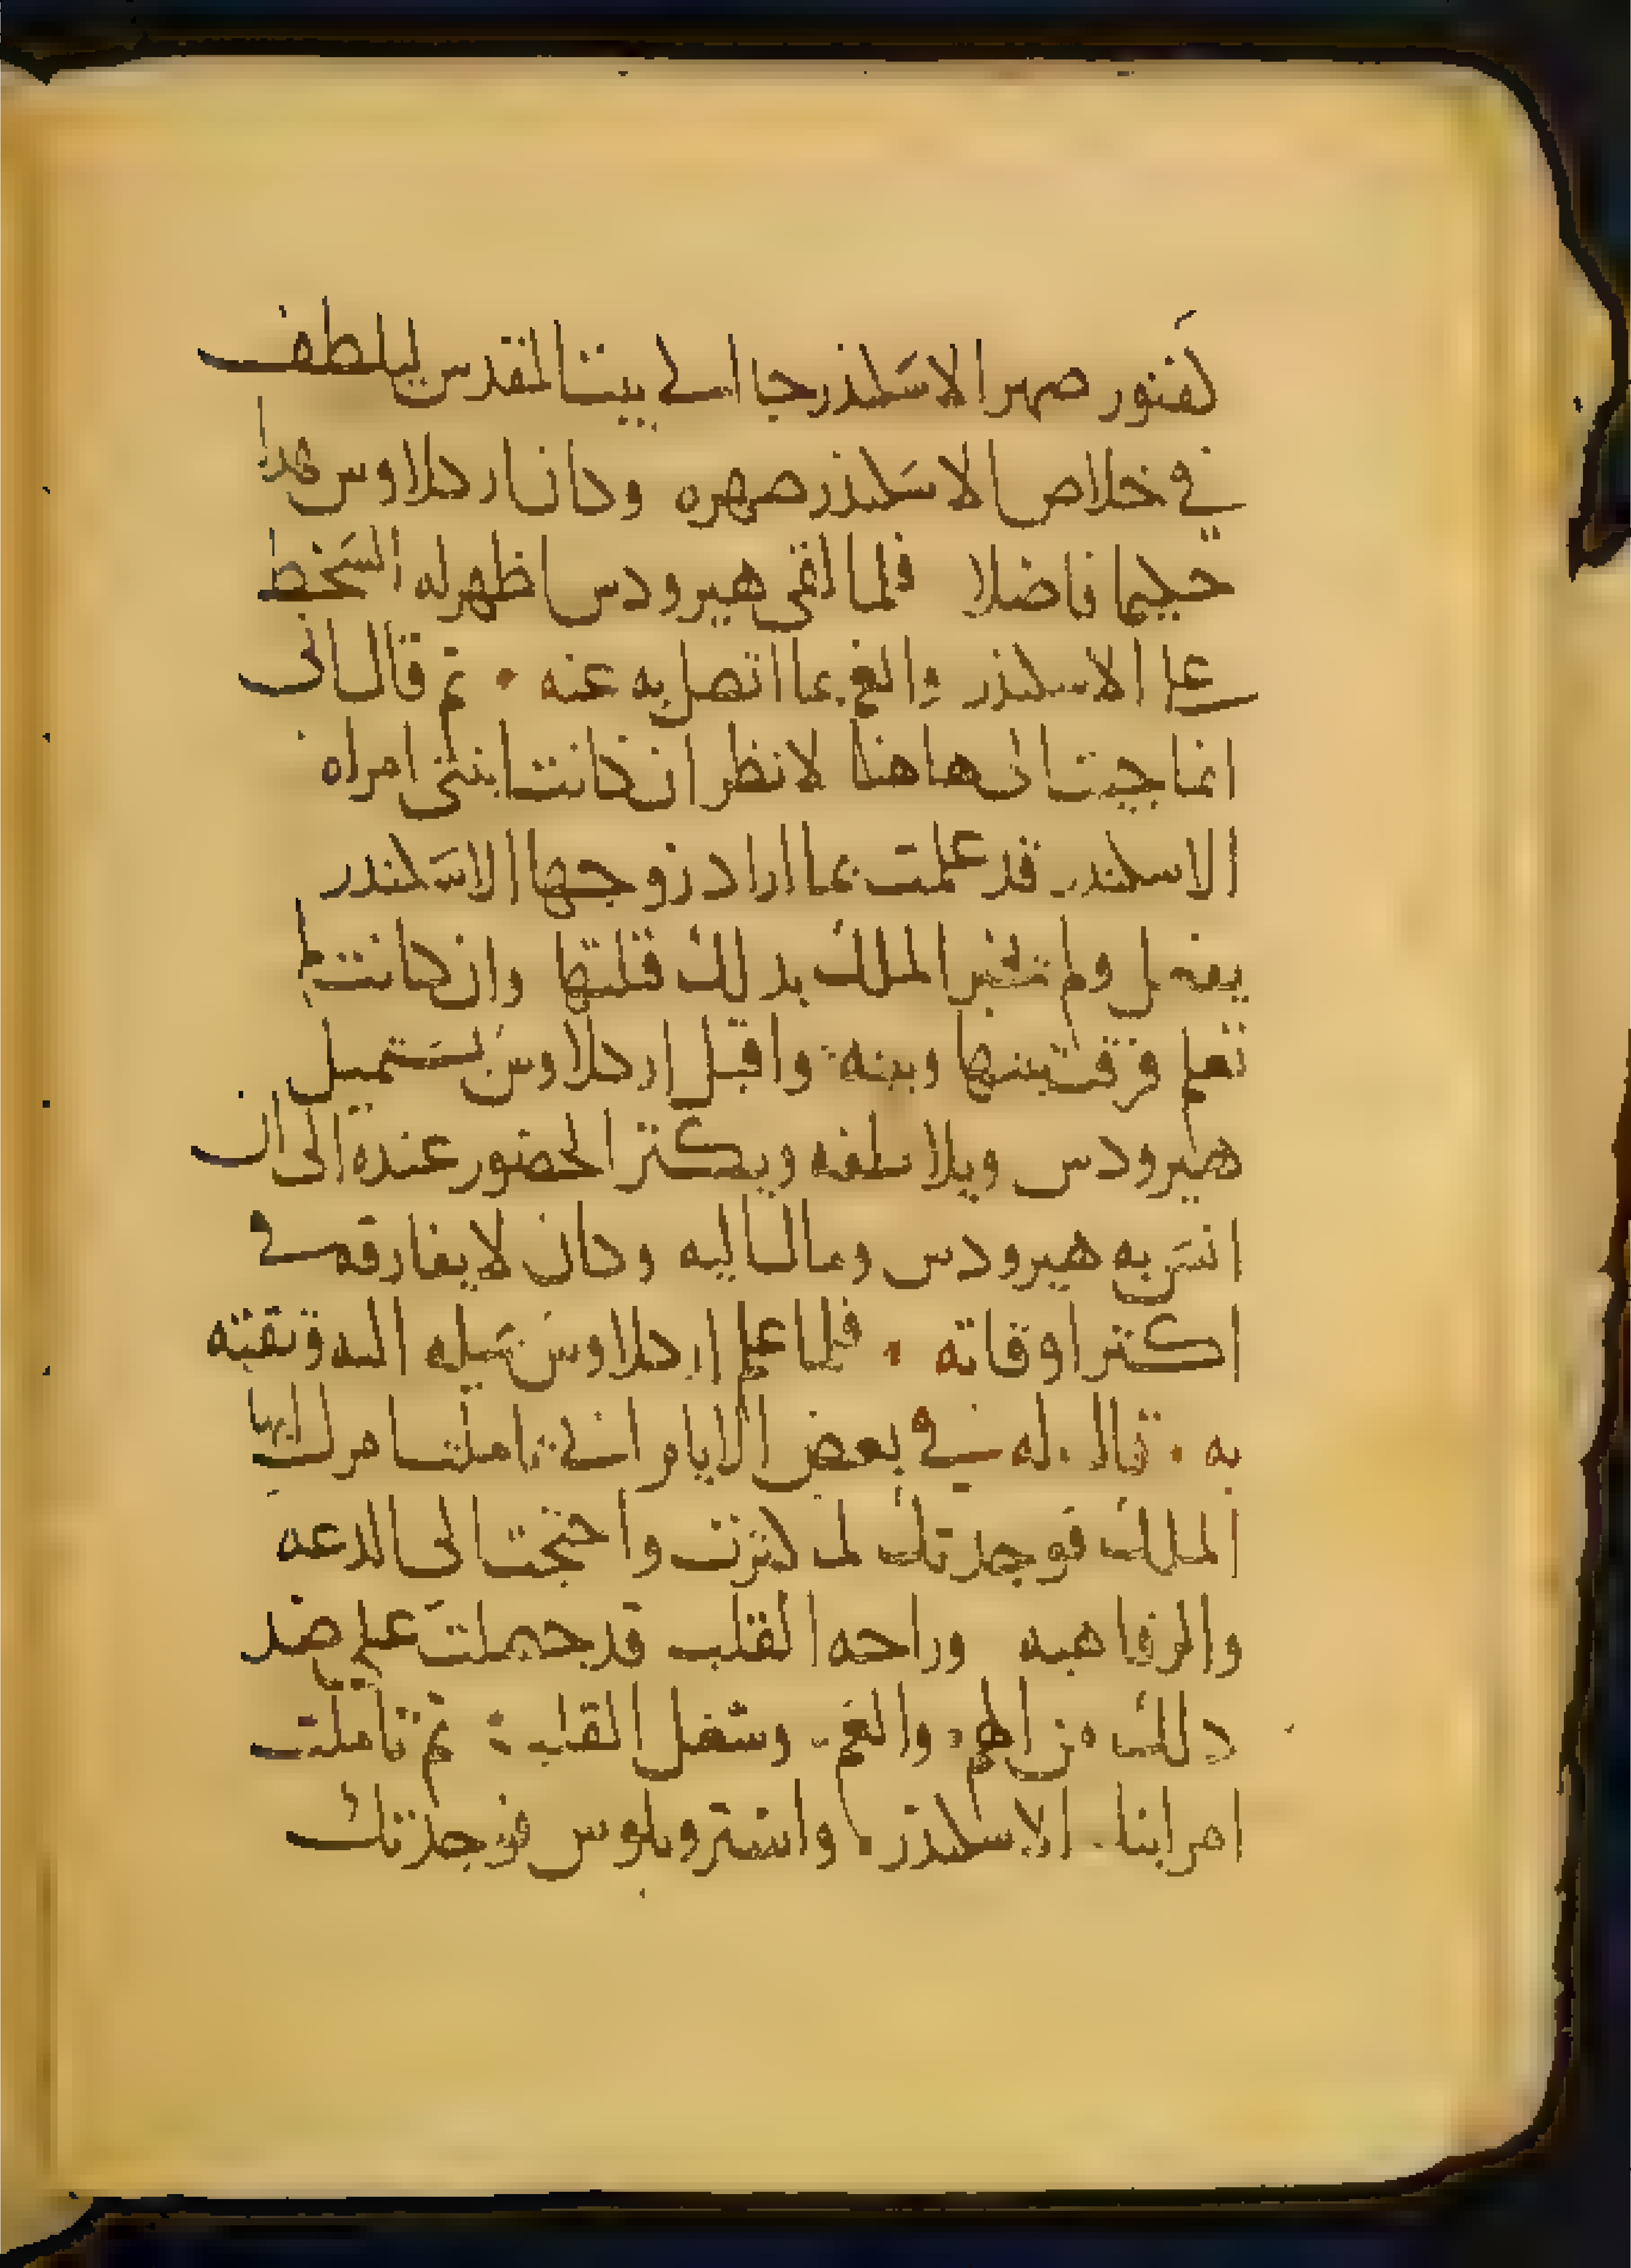 لفنور صهر الاسكندر جا الى بيت المقدس ليلطف
في خلاص الاسكندر صهره وكان اركلاوس هذا
حكيما فاضلا فلما لقى هيرودس اظهر له السخط
على الاسكندر والغم بما اتصل به عنه . ثم قال انى
انما جيت الى هاهنا لانظر ان كانت ابنتى امراه
الاسكندر قد علمت بما اراد زوجها الاسكندر
يفعل ولم تخبر الملك بدلك قتلتها وان كانت لم
تعلم فرقت بينها وبينه . واقبل اركلاوس يستميل
هيرودس ويلاطفه ويكثر الحضور عنده الى ان
انس به هيرودس ومال اليه وكان لا يفارقه في
اكثر اوقاته . فلما علم اركلاوس ميله اليه وثقته
به . قال له في بعض الايام انى تاملت امرك ايها
الملك فوجدتك لما كبرت واحتجت الى الدعه
والرفاهيه وراحه القلب قد حصلت على ضد
دلك من الهم . والغم . وشغل القلب . ثم تاملت
امر ابنا . الاسكندر . وارستروبلوس فوجدتك